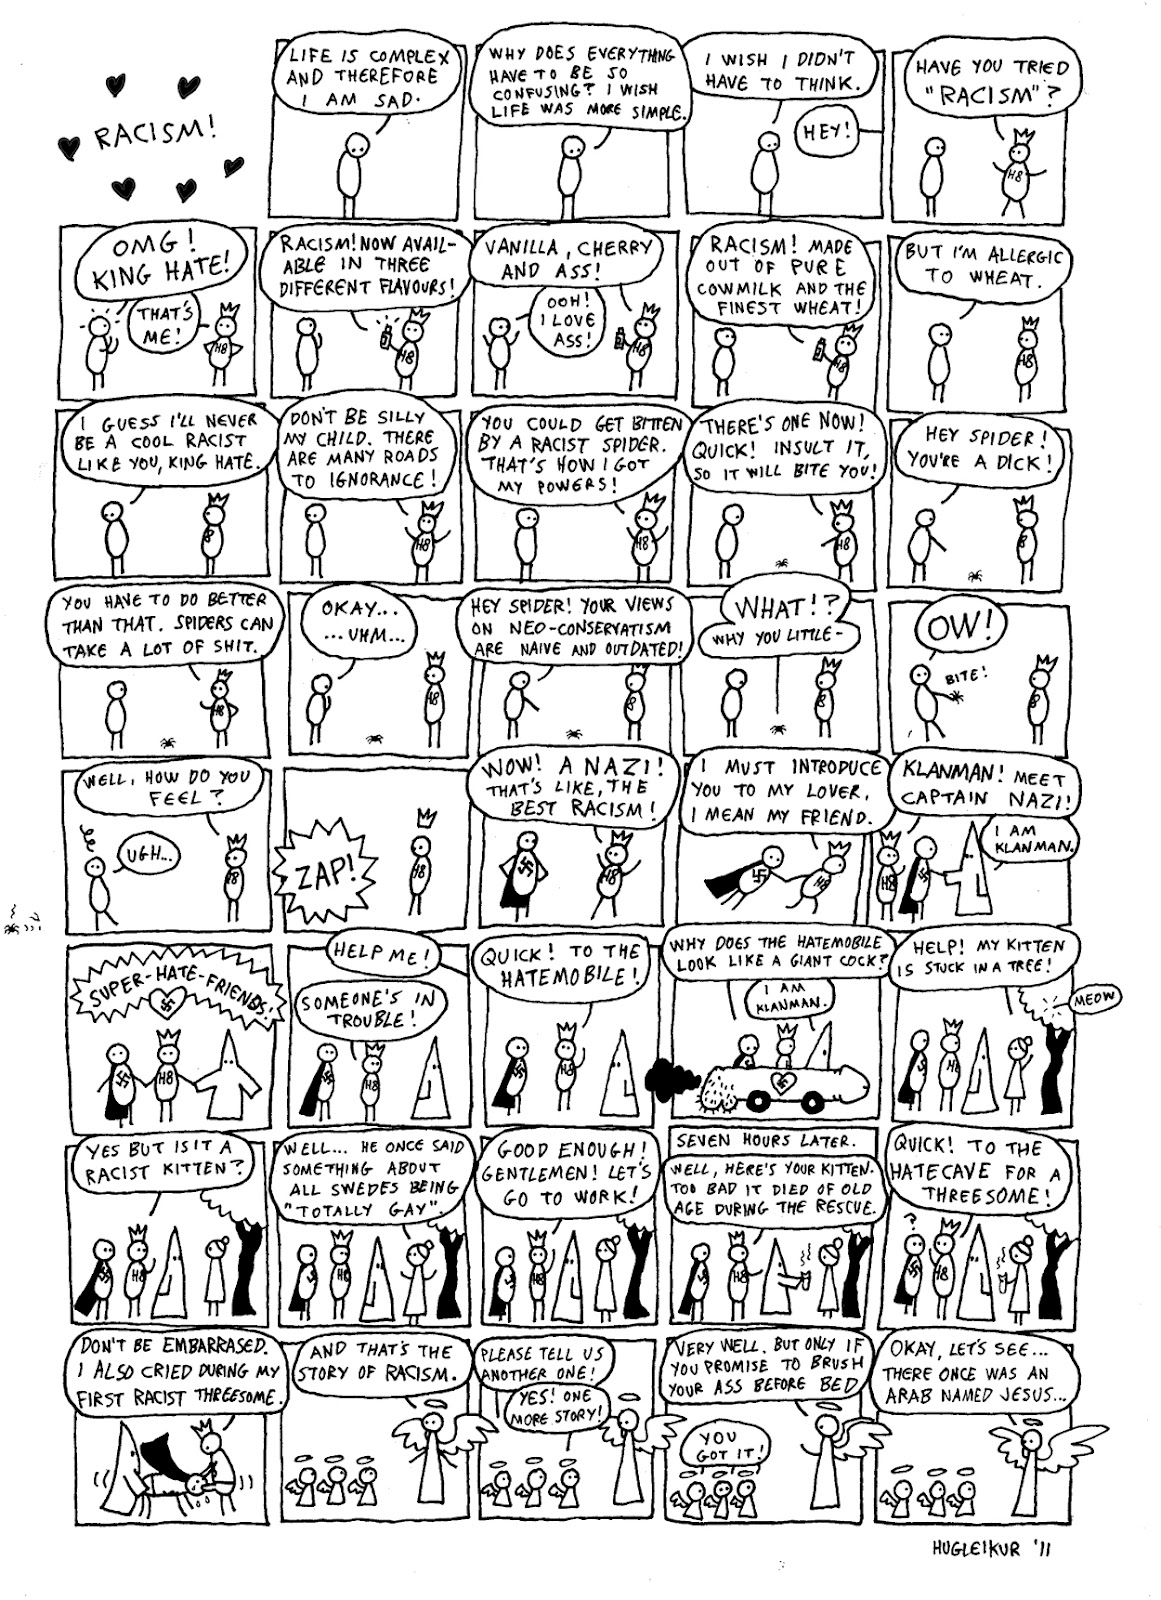 RACISM!
LIFE IS COMPLEX
AND THEREFORE
I AM SAD.
WHY DOES EVERYTHING
HAVE TO BE SO
CONFUSING? I WISH
LIFE WAS MORE SIMPLE.
I WISH I DIDN'T
HAVE TO THINK.
HEY!
HAVE YOU TRIED
"RACISM"?
H8
OMG!
KING HATE!
THAT'S
ME!
H8
RACISM! NOW AVAIL-
ABLE IN THREE
DIFFERENT FLAVOURS!
H8
VANILLA, CHERRY
AND ASS!
OOH!
I LOVE
ASS!
H8
RACISM! MADE
OUT OF PURE
COWMILK AND THE
FINEST WHEAT!
H8
BUT I'M ALLERGIC
TO WHEAT.
H8
I GUESS I'LL NEVER
BE A COOL RACIST
LIKE YOU, KING HATE.
8
DON'T BE SILLY
MY CHILD. THERE
ARE MANY ROADS
TO IGNORANCE!
H8
YOU COULD GET BITTEN
BY A RACIST SPIDER.
THAT'S HOW I GOT
MY POWERS!
H8
THERE'S ONE NOW!
QUICK! INSULT IT,
SO IT WILL BITE YOU!
H8
HEY SPIDER!
YOU'RE A DICK!
8
YOU HAVE TO DO BETTER
THAN THAT. SPIDERS CAN
TAKE A LOT OF SHIT.
H8
OKAY...
...UHM...
H8
HEY SPIDER! YOUR VIEWS
ON NEO-CONSERVATISM
ARE NAIVE AND OUTDATED!
8
WHAT!?
WHY YOU LITTLE-
8
OW!
BITE!
8
WELL, HOW DO YOU
FEEL?
UGH...
H8
ZAP!
H8
WOW! A NAZI!
THAT'S LIKE, THE
BEST RACISM!
H8
I MUST INTRODUCE
YOU TO MY LOVER,
I MEAN MY FRIEND.
H8
KLANMAN! MEET
CAPTAIN NAZI!
I AM
KLANMAN.
H8
SUPER-HATE-FRIENDS!
H8
HELP ME!
SOMEONE'S IN
TROUBLE!
H8
QUICK! TO THE
HATEMOBILE!
H8
WHY DOES THE HATEMOBILE
LOOK LIKE A GIANT COCK?
I AM
KLANMAN.
HELP! MY KITTEN
IS STUCK IN A TREE!
MEOW
H8
YES BUT IS IT A
RACIST KITTEN?
H8
WELL... HE ONCE SAID
SOMETHING ABOUT
ALL SWEDES BEING
"TOTALLY GAY".
H8
GOOD ENOUGH!
GENTLEMEN! LET'S
GO TO WORK!
H8
SEVEN HOURS LATER.
WELL, HERE'S YOUR KITTEN.
TOO BAD IT DIED OF OLD
AGE DURING THE RESCUE.
H8
QUICK! TO THE
HATECAVE FOR A
THREESOME!
?
H8
DON'T BE EMBARRASED.
I ALSO CRIED DURING MY
FIRST RACIST THREESOME.
AND THAT'S THE
STORY OF RACISM.
PLEASE TELL US
ANOTHER ONE!
YES! ONE
MORE STORY!
VERY WELL. BUT ONLY IF
YOU PROMISE TO BRUSH
YOUR ASS BEFORE BED
YOU
GOT IT!
OKAY, LET'S SEE...
THERE ONCE WAS AN
ARAB NAMED JESUS...
HUGLEIKUR '11